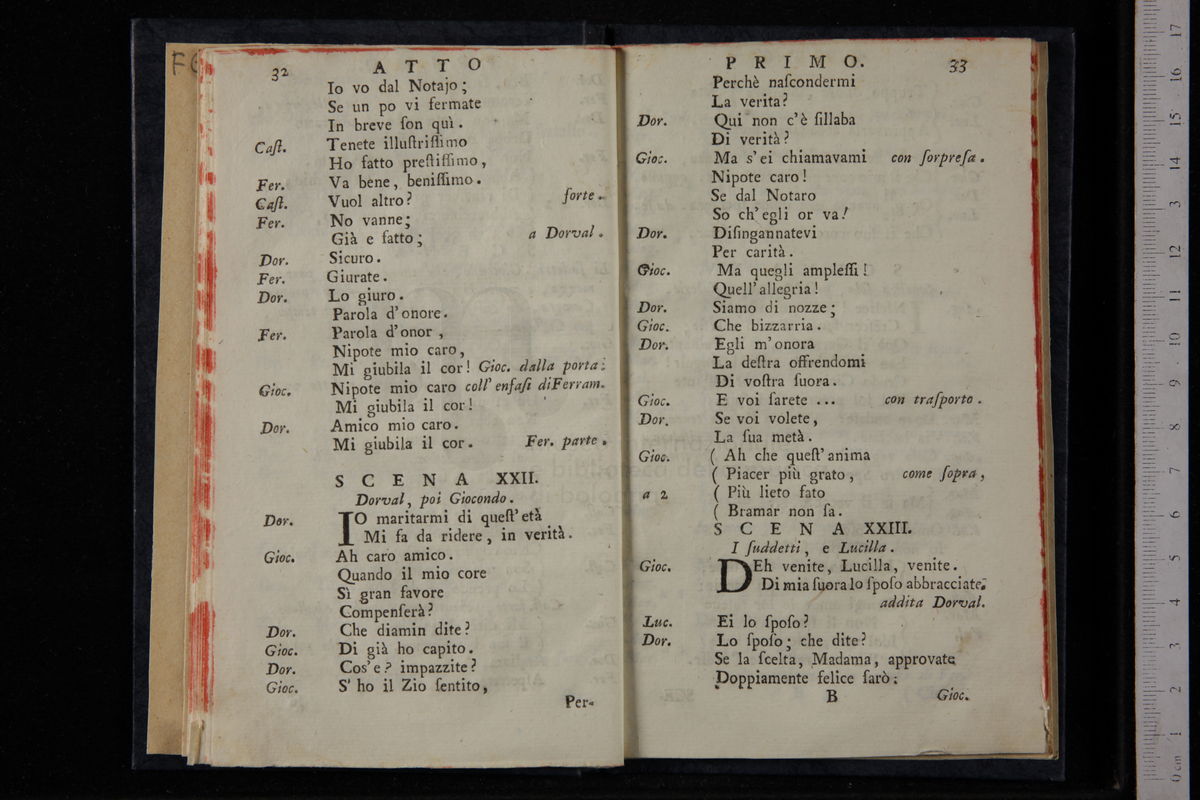 32 ATTO
Io vo dal Notajo;
Se un po vi fermate
In breve ſon quì.
Caſt. Tenete illuſtriſſimo
Ho fatto preſtiſſimo,
Fer. Va bene, beniſſimo.
Caſt. Vuol altro? forte.
Fer. No vanne;
Già e fatto; a Dorval.
Dor. Sicuro.
Fer. Giurate.
Dor. Lo giuro.
Parola d'onore.
Fer. Parola d'onor,
Nipote mio caro,
Mi giubila il cor! Gioc. dalla porta:
Gioc. Nipote mio caro coll' enfaſi diFerram.
Mi giubila il cor!
Dor. Amico mio caro.
Mi giubila il cor. Fer. parte.
SCENA XXII.
Dorval, poi Giocondo.
Dor. IO maritarmi di queſt'età
Mi fa da ridere, in verità.
Gioc. Ah caro amico.
Quando il mio core
Sì gran favore
Compenſerà?
Dor. Che diamin dite?
Gioc. Di già ho capito.
Dor. Cos'e? impazzite?
Gioc. S' ho il Zio ſentito,
Per-
PRIMO. 33
Perchè naſcondermi
La verita?
Dor. Qui non c'è ſillaba
Di verità?
Gioc. Ma s'ei chiamavami con ſorpreſa.
Nipote caro!
Se dal Notaro
So ch'egli or va!
Dor. Diſingannatevi
Per carità.
Gioc. Ma quegli ampleſſi!
Quell'allegria!
Dor. Siamo di nozze;
Gioc. Che bizzarria.
Dor. Egli m'onora
La deſtra offrendomi
Di voſtra ſuora.
Gioc. E voi ſarete ... con traſporto.
Dor. Se voi volete,
La ſua metà.
Gioc. ( Ah che queſt'anima
( Piacer più grato, come ſopra,
a 2 ( Più lieto fato
( Bramar non ſa.
SCENA XXIII.
I ſuddetti, e Lucilla.
Gioc. DEh venite, Lucilla, venite.
Di mia ſuora lo ſpoſo abbracciate.
addita Dorval.
Luc. Ei lo ſpoſo?
Dor. Lo ſpoſo; che dite?
Se la ſcelta, Madama, approvate
Doppiamente felice ſarò;
B Gioc.